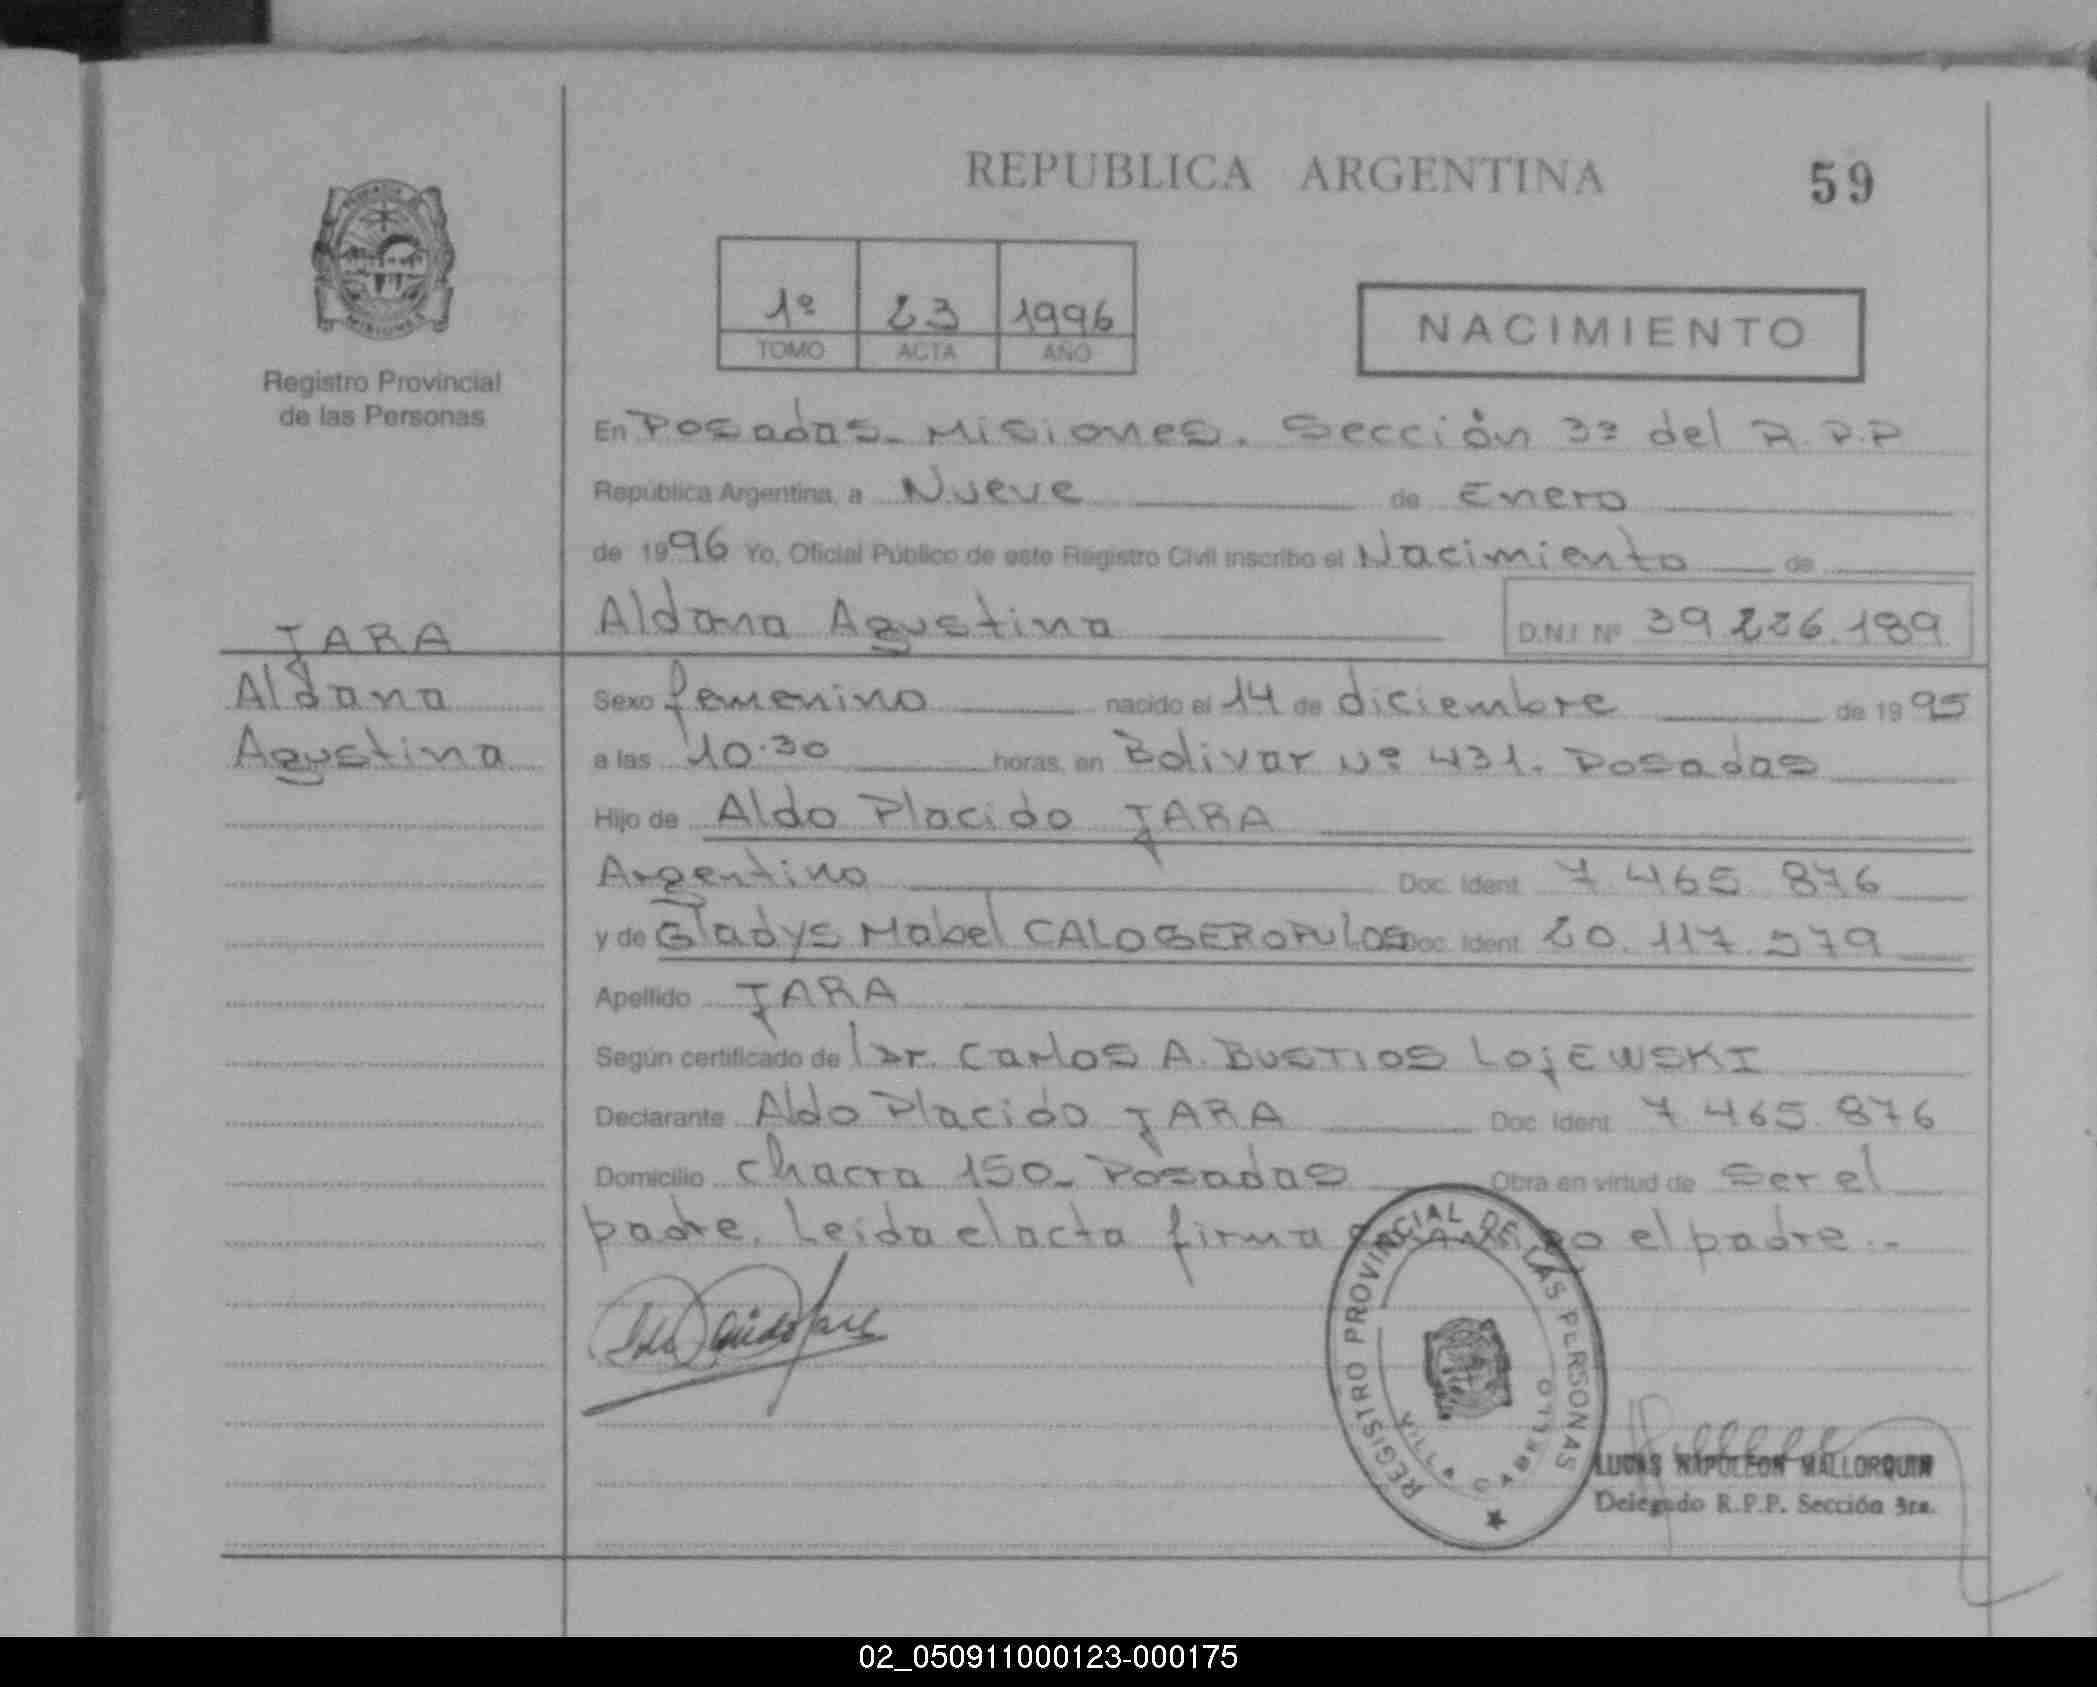 REPUBLICA ARGENTINA
59
1º 23 1996
TOMO ACTA AÑO
NACIMIENTO
MISIONES
Registro Provincial
de las Personas
En Posadas - Misiones. Sección 3ª del R.P.P
República Argentina, a Nueve de Enero
de 1996 Yo, Oficial Público de este Registro Civil inscribo el Nacimiento de
Aldana Agustina D.N.I. Nº 39.226.189
JARA
Aldana
Agustina
Sexo femenino nacido el 14 de diciembre de 1995
a las 10.30 horas, en Bolivar Nº 431. Posadas
Hijo de Aldo Placido JARA
Argentino Doc. Ident. 7.465.876
y de Gladys Mabel CALOGEROPULOS Doc. Ident. 20.117.979
Apellido JARA
Según certificado de Dr. Carlos A. BUSTIOS LOJEWSKI
Declarante Aldo Placido JARA Doc. Ident. 7.465.876
Domicilio chacra 150 - Posadas Obra en virtud de ser el
padre. Leida el acta firma el padre.-
REGISTRO PROVINCIAL DE LAS PERSONAS
VILLA CABELLO
LUCAS NAPOLEON MALLORQUIN
Delegado R.P.P. Sección 3ra.
02_050911000123-000175